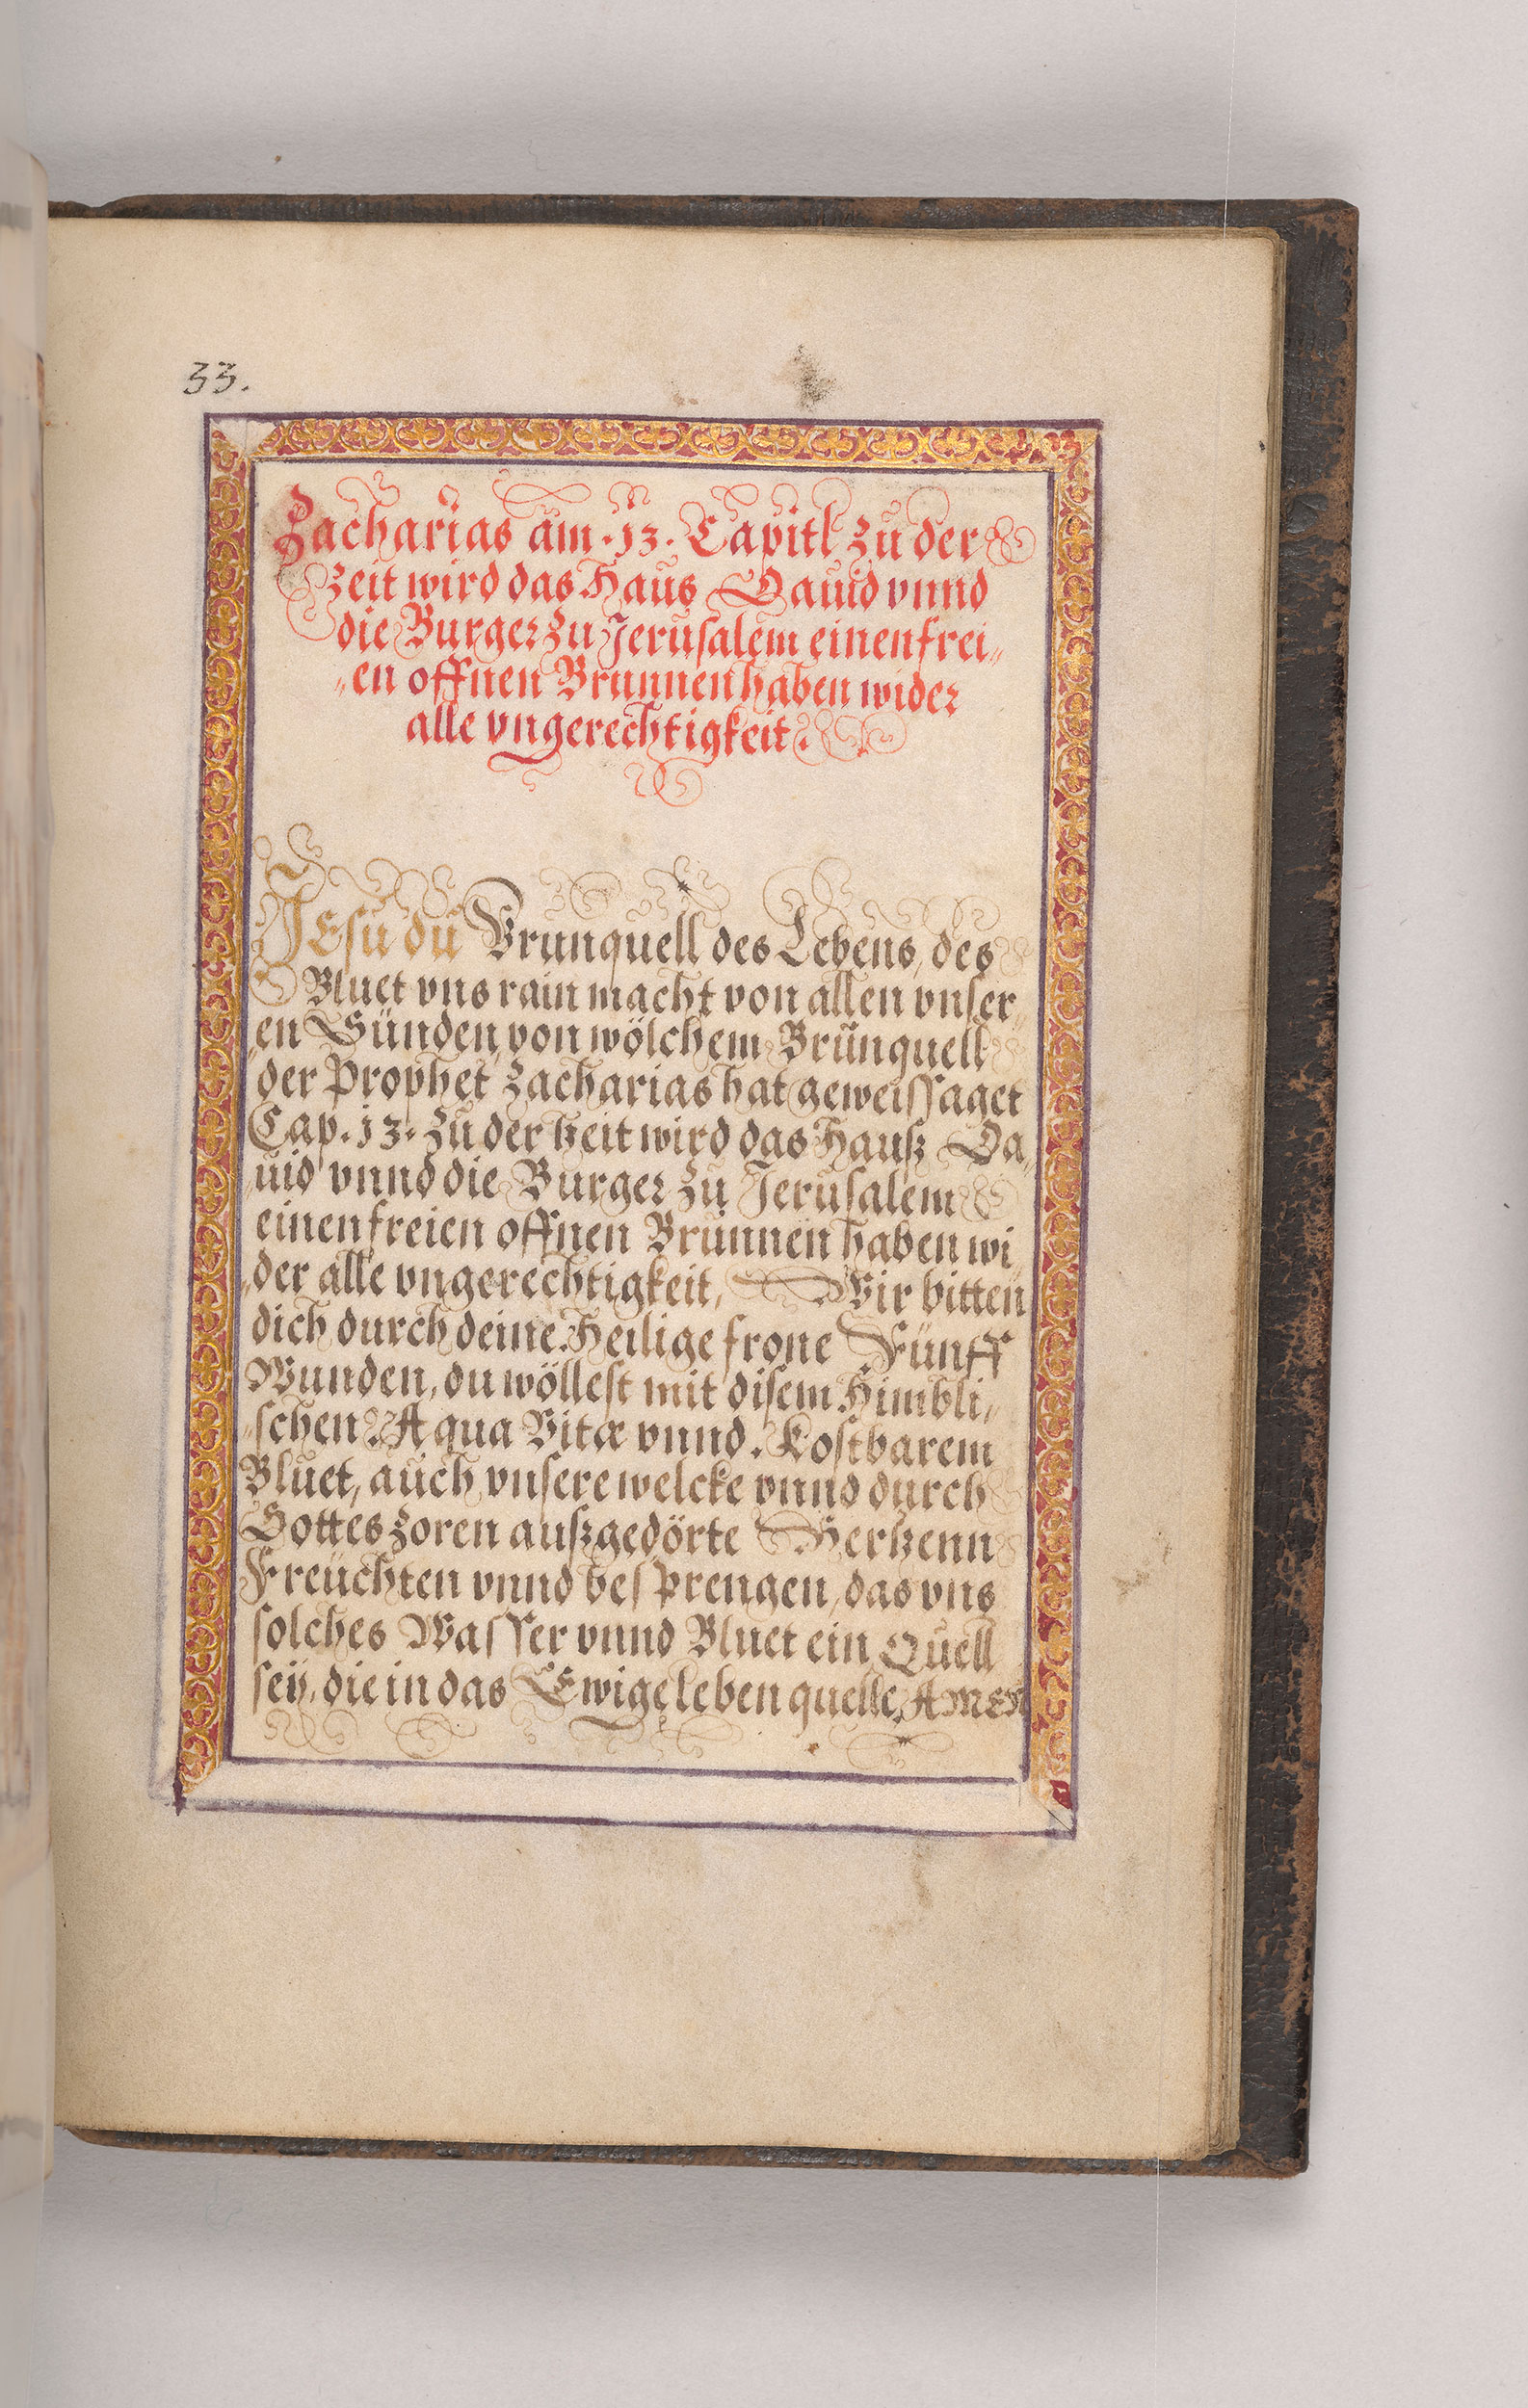 33.
Zacharias am .13. Capitl zu der
Zeit wird das Haus Dauid vnnd
die Burger zu Jerusalem einen frei„
„en offnen Brunnen haben wider
alle vngerechtigkeit.
JEsu du Brunquell des Lebens, des
Bluet vns rain macht von allen vnser„
„en Sünden, von wölchem Brunquell
der Prophet Zacharias hat geweissaget
Cap. 13. Zu der Zeit wird das Hauß Da„
„uid vnnd die Burger zu Jerusalem
einen freien offnen Brunnen haben wi„
„der alle vngerechtigkeit, Wir bitten
dich durch deine Heilige frone Fünff
Wunden, du wöllest mit disem Himbli„
„schen Aqua Vitæ vnnd Kostbarem
Bluet, auch vnsere welcke vnnd durch
Gottes zoren außgedörte Hertzenn
Freuchten vnnd besprengen, das vns
solches Wasser vnnd Bluet ein Quell
seÿ, die in das Ewige leben quelle, AMEN